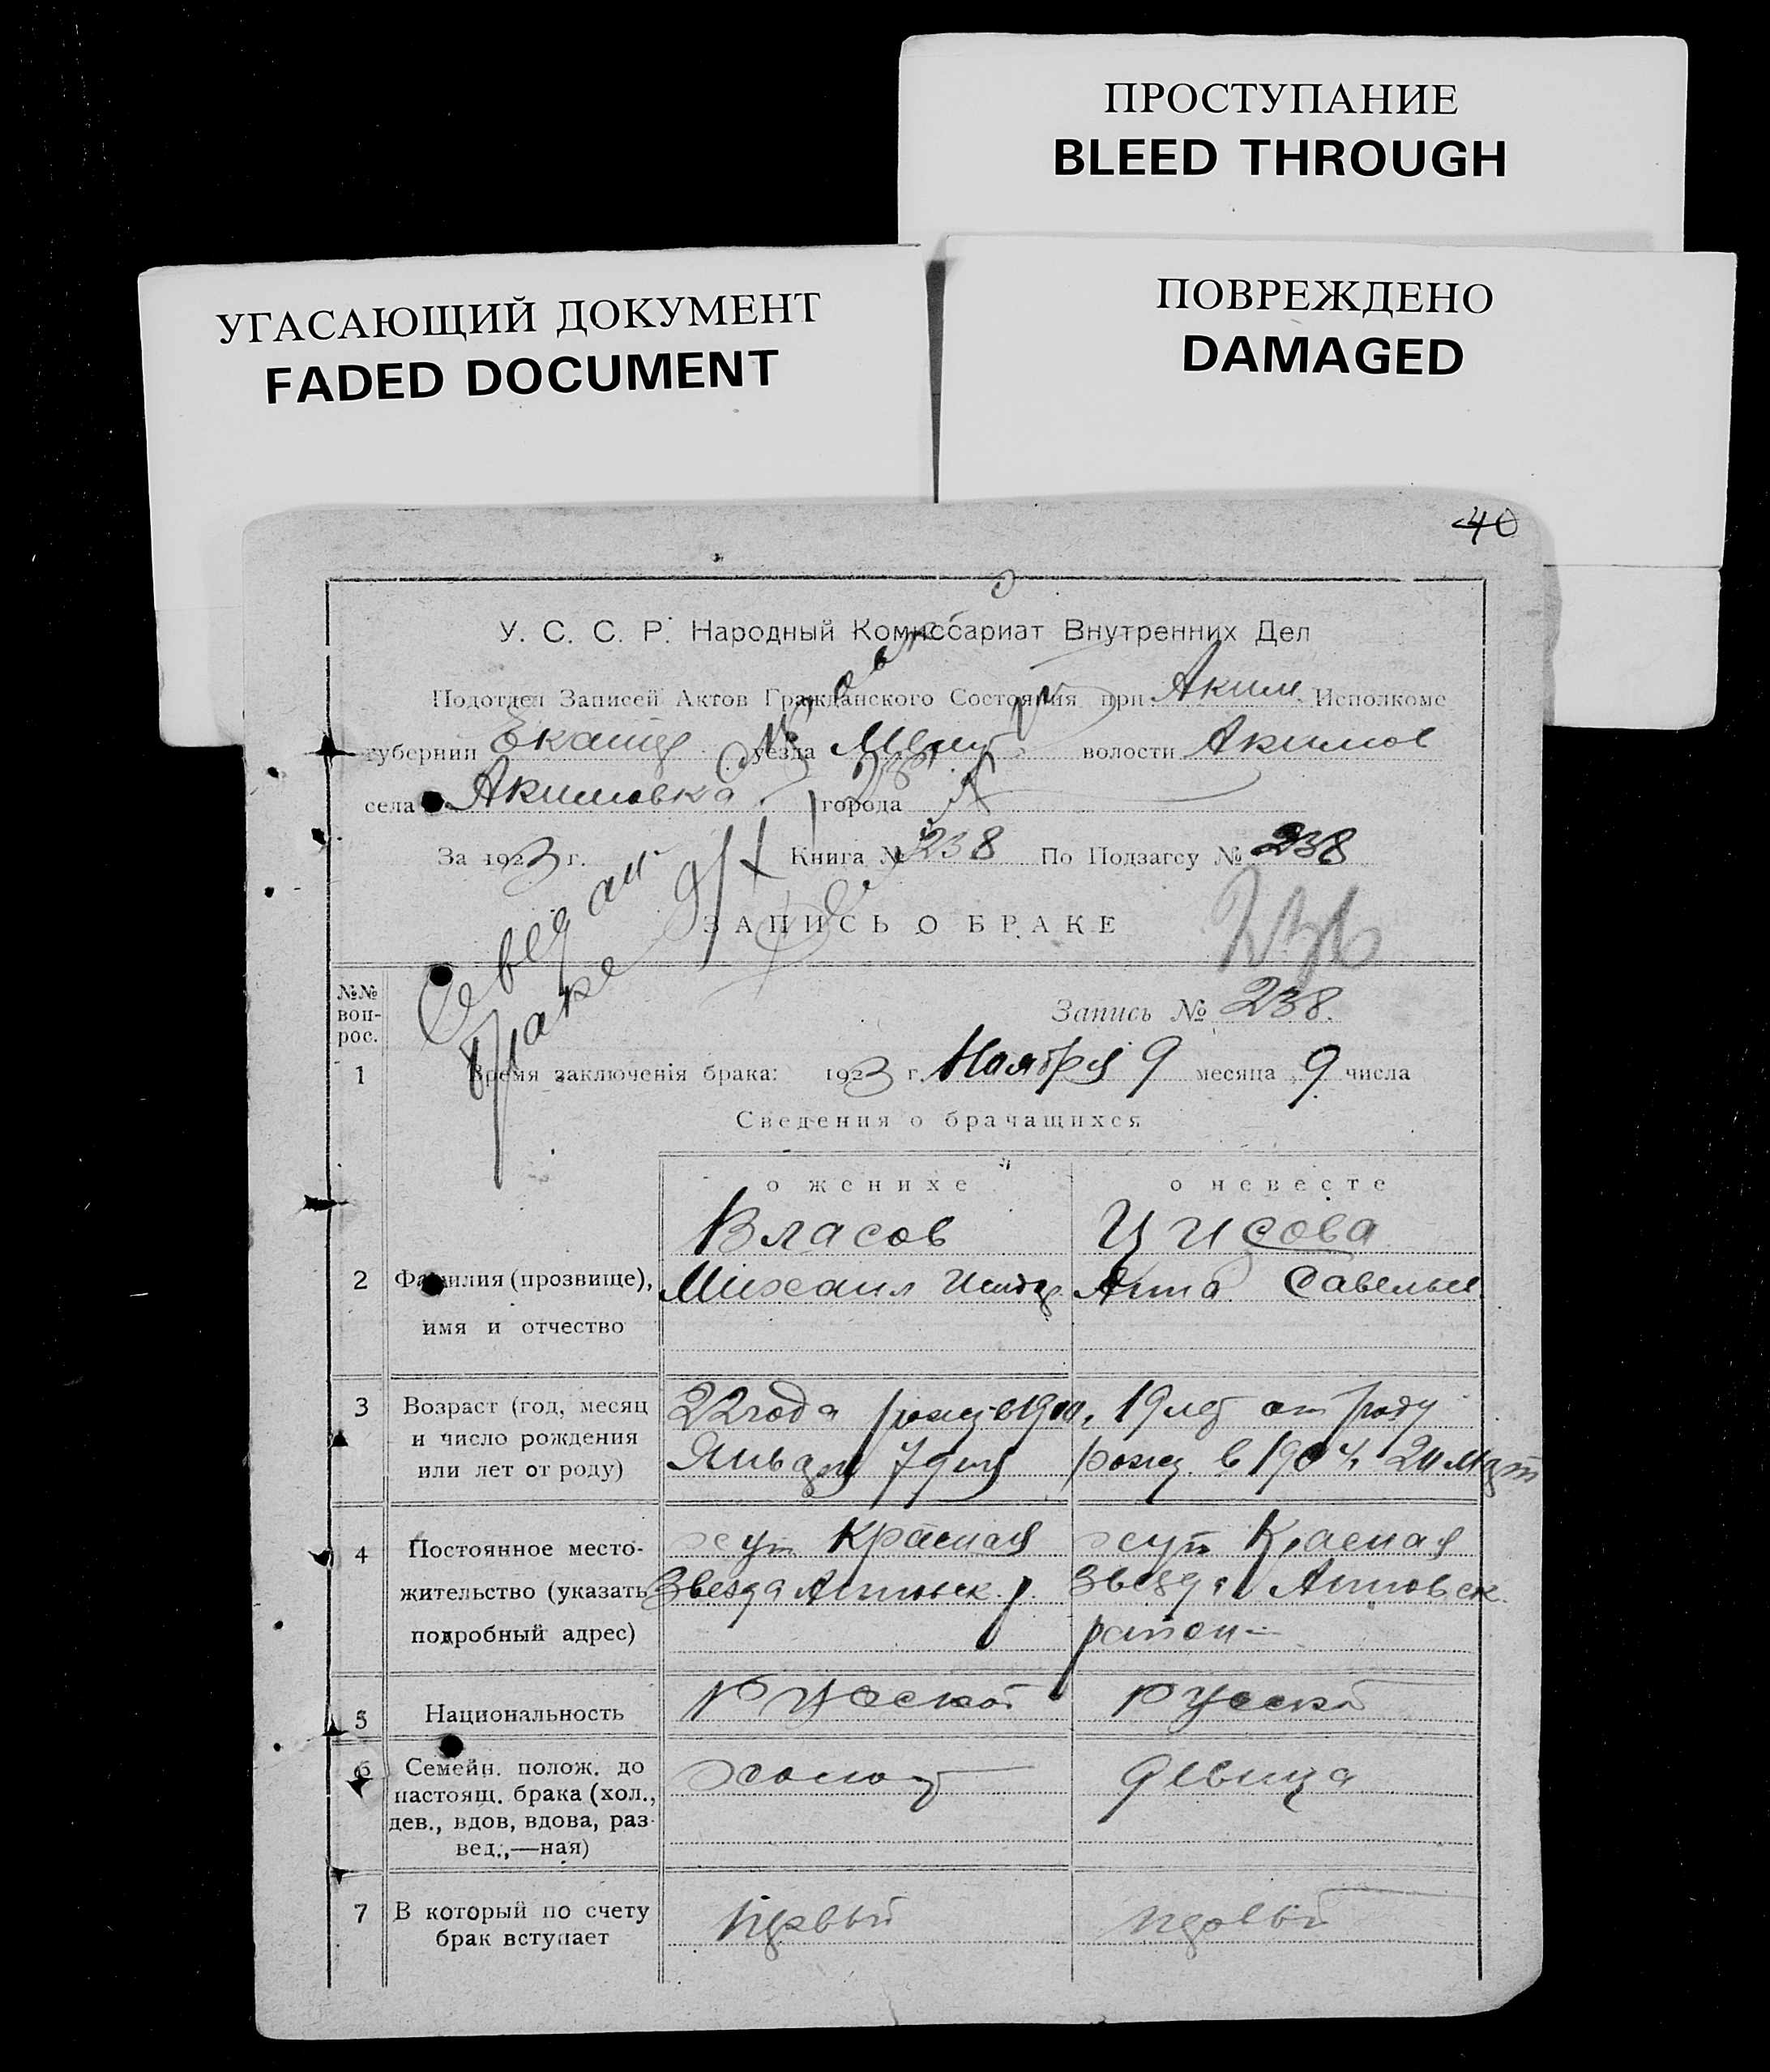 ПРОСТУПАНИЕ
BLEED THROUGH
УГАСАЮЩИЙ ДОКУМЕНТ
FADED DOCUMENT
ПОВРЕЖДЕНО
DAMAGED
40
У. С. С. Р. Народный Комиссариат Внутренних Дел
Подотдел Записей Актов Гражданского Состояния при Аким. Исполкоме
губернии Екатер уезда Мелит волости Акимов
села Акимовка города
За 1923 г. Книга № 238 По Подзагсу № 238
ЗАПИСЬ О БРАКЕ
236
№№ вопрос.
Запись № 238.
1 Время заключенія брака: 1923 г. Ноября 9 месяца 9 числа
Сведения о брачащихся
о женихе о невесте
Власов
2 Фамилия (прозвище), Михаил Анна Савельев
имя и отчество
3 Возраст (год, месяц 22 года рожд в 1900. 19 лет от роду
и число рождения Января 7 дня рожд. в 1904 20 Март
или лет от роду)
4 Постоянное место- хут Красная хут Красная
жительство (указать Звезда р. Звезда
подробный адрес) район
5 Национальность Русской Русской
6 Семейн. полож. до холост девица
настоящ. брака (хол.,
дев., вдов, вдова, раз-
вед.,—ная)
7 В который по счету первый первый
брак вступает